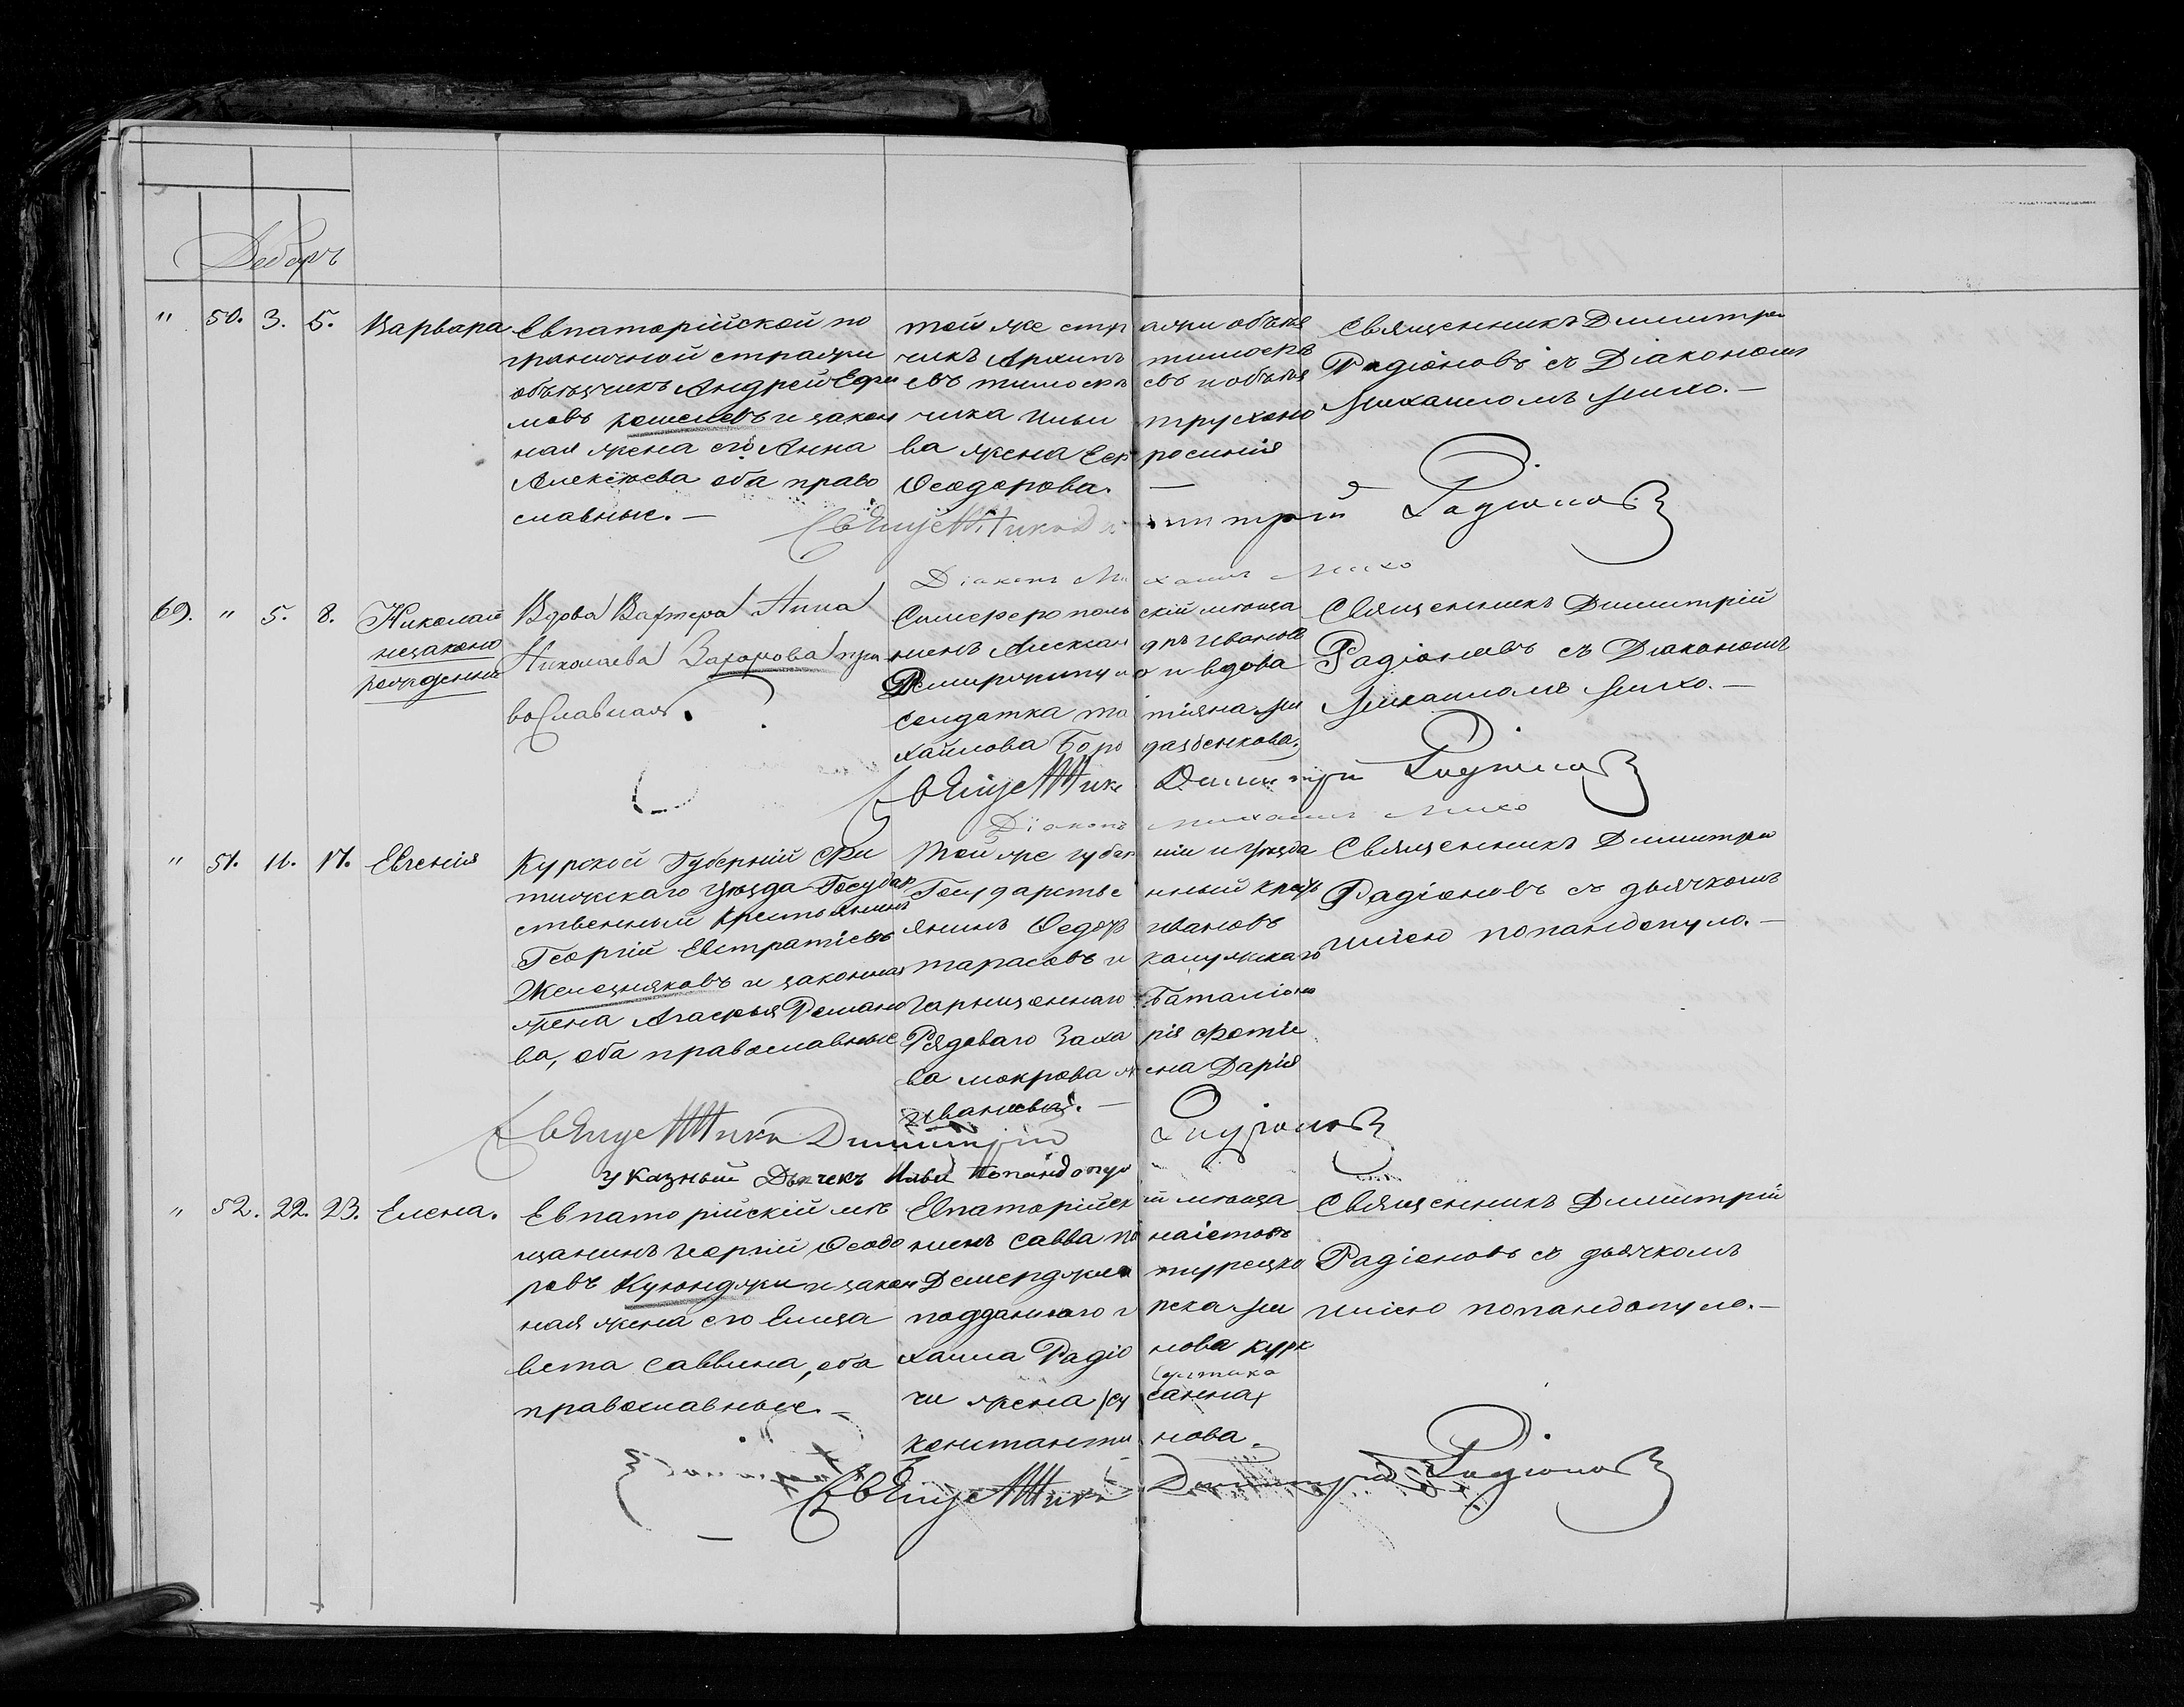 Декабрь
" 50. 3. 5. Варвара
Евпаторійской по
граничной стражи
объѣзчикъ Андрей Ефи
мовъ Рошелевъ и закон
ная жена его Анна
Алексѣева оба право
славные. —
той же стражи объѣз
чикъ Архипъ Тимосѣе
евъ и объѣз
чика Ильи Трухано
ва жена Ефросинія
Ѳеодорова. —
Священникъ Димитрій
Радіоновъ съ Діакономъ
Михаиломъ Михо. —
Священникъ Димитрій Радіоновъ
Діаконъ Михаилъ Михо
69. " 5. 8. Николай
незаконо
рожденный
Вдова Вахтера Анна
Николаева Захарова пра
вославная.
Симферопольскій мѣща
нинъ Александръ Ивановъ
и вдова
солдатка Татіяна Ми
хайлова Бороздаенкова.
Священникъ Димитрій
Радіоновъ съ Діакономъ
Михаиломъ Михо. —
Священникъ Димитрій Радіоновъ
Діаконъ Михаилъ Михо
" 51. 11. 17. Евгенія
Курской Губерній
уѣзда Государ
ственный крестьянинъ
Георгій Евстратіевъ
Железняковъ и законная
жена Агафья Романо
ва, оба православные
Той же губерніи и уѣзда
Государственный крѣсть
янинъ Ѳедоръ Ивановъ
Тарасовъ и Калужскаго
Гарнизоннаго Баталіона
Рядоваго Захарія Фотіе
ва Мокрова жена Дарія
Иванова. —
Священникъ Димитрій
Радіоновъ съ дьячкомъ
Иліею Попандопуло. —
Священникъ Димитрій Радіоновъ
Указный Дьячекъ Илья Попандопуло
" 52. 22. 23. Елена.
Евпаторійскій мѣ
щанинъ Георгій Ѳеодо
ровъ Куюнджи и закон
ная жена его Елиза
вета Саввина, оба
православные. —
Евпаторійскій мѣща
нинъ Савва Панаіотовъ
Демерджи и турецко
подданного грека Ми
хаила Радіонова Курк
чи жена Сусанна
Константинова.
Священникъ Димитрій
Радіоновъ съ дьячкомъ
Иліею Попандопуло. —
Священникъ Димитрій Радіоновъ